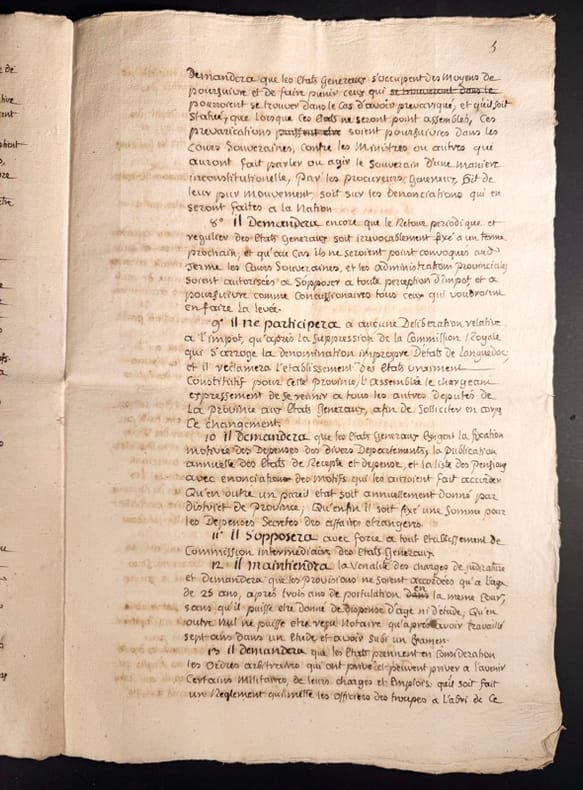 5
Demandera que les Etats Generaux s'occupent des Moyens de
poursuivre et de faire punir ceux qui se trouveront dans le
pourroient se trouver dans le Cas d'avoir prevariqué, et qu'il soit
Statué, que lorsque ces Etats ne seront point assemblés, Ces
prevarications puissent etre soient poursuivies dans les
Cours Souveraines, contre les Ministres ou autres que
auront fait parler ou agir le Souverain d'une maniere
inconstitutionelle, Par les procureurs Generaux, soit de
leur pur mouvement, soit sur les denonciations qui en
seront faites a la Nation
8° il Demandera encore que le Retour periodique et
regulier des Etats Generaux soit irrevocablement fixé a un terme
prochain, et qu'au Cas ils ne seroient point convoqués aud.
terme les Cours Souveraines, et les administrations provinciales
soient autorisées a s'opposer a toute perception d'impot et a
poursuivre comme Concussionaires tous ceux qui voudroient
en faire la levée.
9° il ne participera a aucune Deliberation relative
a l'impot, qu'après la suppression de la Commission Royale
qui s'arroge la denomination impropre d'Etats de Languedoc,
et il reclamera l'etablissement des Etats vraiment
Constitutifs pour Cette Province, l'assemblée le chargeant
expressement de se reunir a tous les autres deputés de
La Province aux Etats Generaux, afin de Solliciter en corps
Ce changement.
10 il demandera que les Etats Generaux Exigent la fixation
motivée des Depenses des divers Departements, la publication
annuelle des Etats de Recepte et depense, et la liste des Pensions
avec enonciation des Motifs qui les auroient fait accorder
Qu'en outre un pareil etat soit annuellement donné par
district de Province, Qu'enfin il soit fixé une Somme pour
les Depenses Secretes des affaires etrangeres
11° il s'opposera avec force a tout Etablissement de
Commission intermediaire des Etats Generaux
12 il maintiendra la venalité des charges de judicature
et demandera que les provisions ne soient accordées qu'a l'age
de 25 ans, après trois ans de postulation dans en la meme Cour,
sans qu'il puisse etre donné de dispense d'age ni d'etude, Qu'en
outre nul ne puisse etre reçu Notaire qu'après avoir travaillé
sept ans dans un Etude et avoir subi un Examen.
13 il demandera que les Etats prennent en Consideration
les Ordres arbitraires qui ont privé et peuvent priver a l'avenir
Certains Militaires, de leurs charges et Emplois. qu'il soit fait
un Reglement qui mette les officiers des troupes a l'abri de Ce